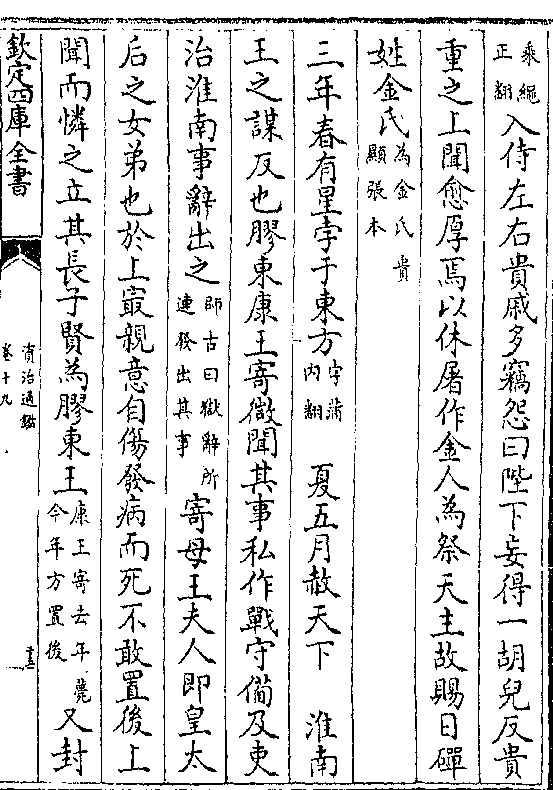 乘繩
正翻
入侍左右貴戚多竊怨曰陛下妄得一胡兒反貴
重之上聞愈厚焉以休屠作金人為祭天主故賜日磾
姓金氏
為金氏貴
顯張本
三年春有星孛于東方
孛蒲
内翻
夏五月赦天下 淮南
王之謀反也膠東康王寄微聞其事私作戰守備及吏
治淮南事辭出之
師古曰獄辭所
連發出其事
寄母王夫人即皇太
后之女弟也於上㝡親意自傷發病而死不敢置後上
聞而憐之立其長子賢為膠東王
康王寄去年薨
今年方置後
又封
欽定四庫全書
資治通鑑
卷十九